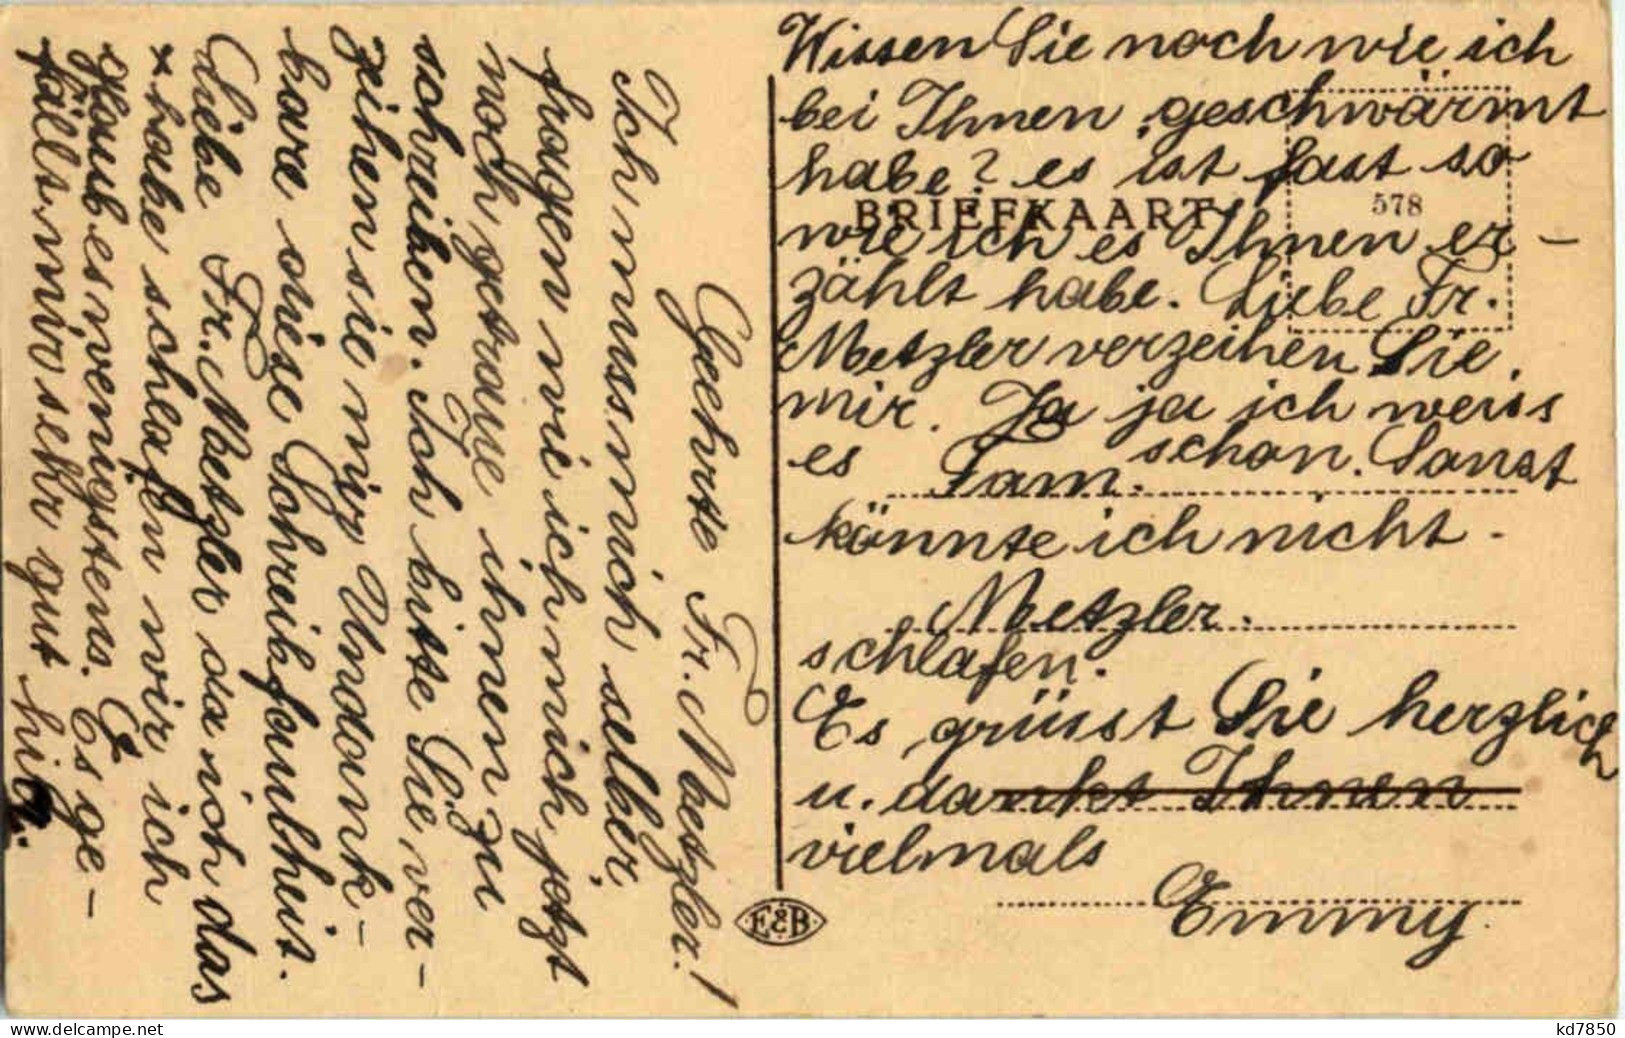 Geehrte Fr. Metzler!
Ich muss mich selber
fragen wie ich mich jetzt
noch getraue ihnen zu
schreiben. Ich bitte Sie ver-
zeihen sie mir Undank-
bare diese Schreibfaulheit.
Liebe Fr. Metzler da ich das
x habe schlafen wir, ich
glaub es wenigstens. Es ge-
fällt mir sehr gut hib.
Wissen Sie noch wie ich
bei Ihnen geschwärmt
habe? es ist fast so
BRIEFKAART
578
wie ich es Ihnen er-
zählt habe. Liebe Fr.
Metzler verzeihen Sie
mir. Ja ja ich weiss
es schon. Sonst
Fam.
könnte ich nicht
Metzler.
schlafen.
Es grüsst Sie herzlich
u. dankt Ihnen
vielmals
Emmy.
E&B
www.delcampe.net
kd7850